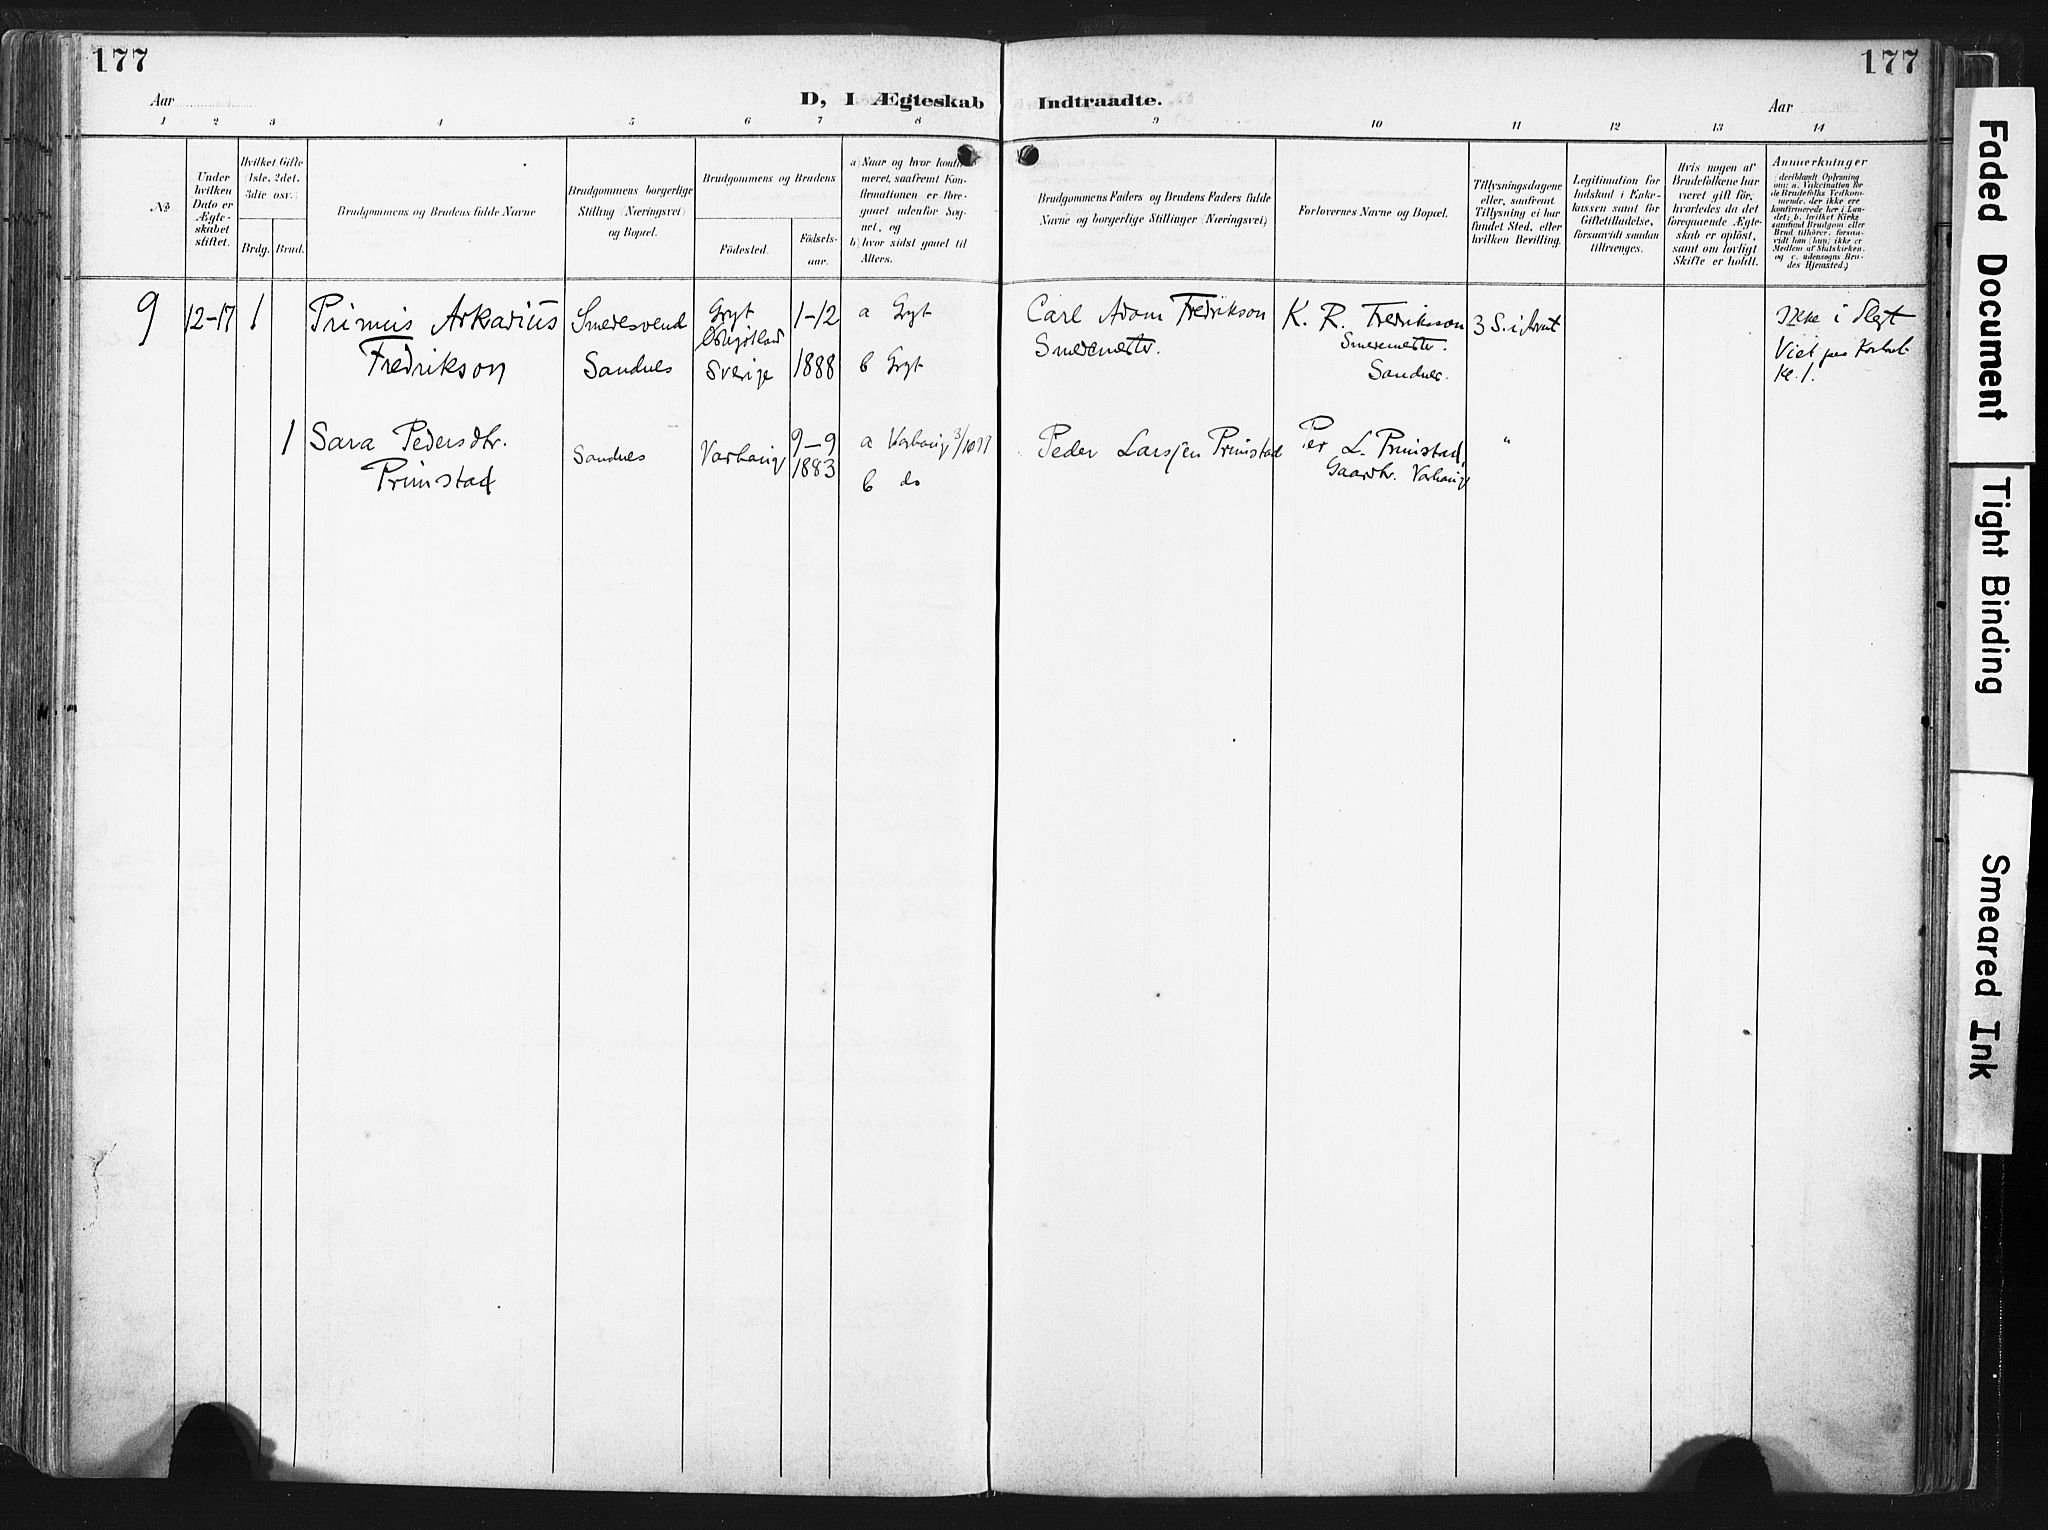 177
177
Aar
D, I Ægteskab Indtraadte.
Aar
1 2 3 4 5 6 7 8 9 10 11 12 13 14
No
Under hvilken Dato er Ægteskabet stiftet.
Hvilket Gifte (1ste, 2det, 3die osv.)
Brdg. Brud.
Brudgommens og Brudens fulde Navne
Brudgommens borgerlige Stilling (Næringsvei) og Bopæl.
Brudgommens og Brudens
Fødested.
Fødselsaar.
a) Naar og hvor konfirmeret, saafremt Konfirmationen er foregaaet udenfor Sognet, og
b) hvor sidst gaaet til Alters.
Brudgommens Faders og Brudens Faders fulde Navne og borgerlige Stillinger (Næringsvei)
Forlovernes Navne og Bopæl.
Tillysningsdagene eller, saafremt Tillysning ei har fundet Sted, efter hvilken Bevilling.
Legitimation for Indskud i Enkekassen samt for Giftetilladelse, forsaavidt saadan tiltrænges.
Hvis nogen af Brudefolkene har været gift før, hvorledes da det foregaaende Ægteskab er opløst, samt om lovligt Skifte er holdt.
Anmærkninger
(deriblandt Oplysning om: a. Vakcination for de Brudefolks Vedkommende, der ikke ere konfirmerede her i Landet; b. hvilket Kirkesamfund Brudgom eller Brud tilhører, forsaavidt han (hun) ikke er Medlem af Statskirken, og c. udensogns Brudes Hjemsted.)
9 12-17 1 Primus Arkadius Smedesvend Gryt 1-12 a Gryt Carl Adam Fredrikson K. R. Fredriksson 3 S. i Advent Ikke i Slegt
Østgøtland Smedemester. Smedemester. Viet paa
Fredrikson Sandnes Sverige 1888 b Gryt Sandnes. Kl. 1.
1 Sara Pedersdtr. Sandnes Varhaug 9-9 a Varhaug 3/10 97 Peder Larsen Primstad Per L. Primstad "
Primstad 1883 b do Gaardbr. Varhaug
Faded Document
Tight Binding
Smeared Ink